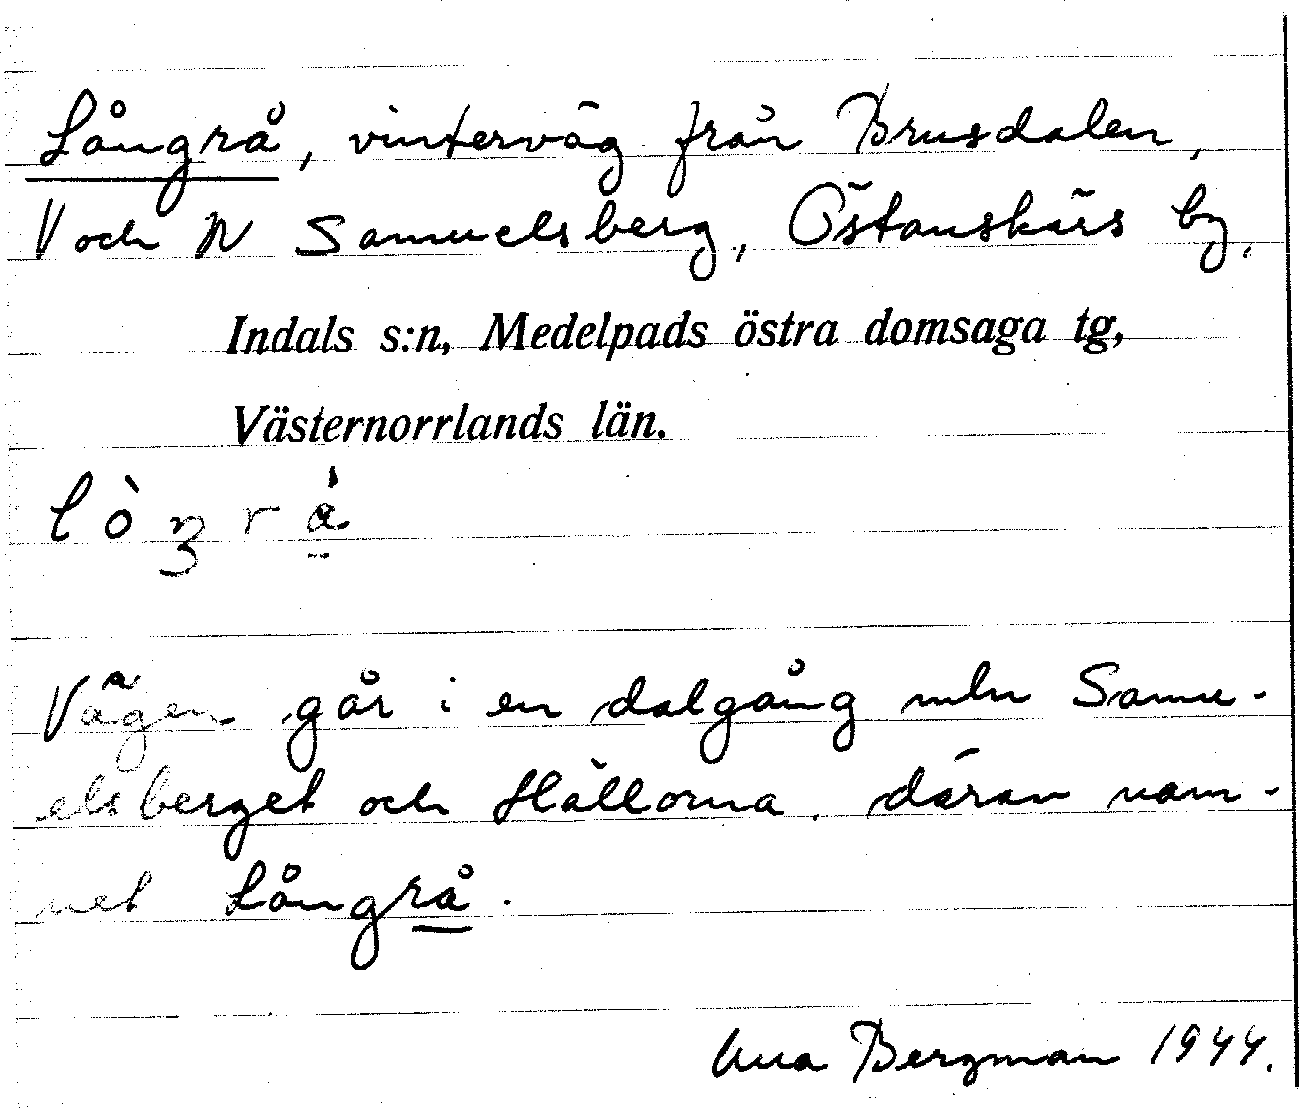 Långrå, vinterväg från Brusdalen,
V och N Samuelsberg, Östanskärs by,
Indals s:n, Medelpads östra domsaga tg,
Västernorrlands län.
Vägen går i en dalgång mln Samu-
elsberget och Hällorna. därav nam-
net Långrå.
Anna Bergman 1944.